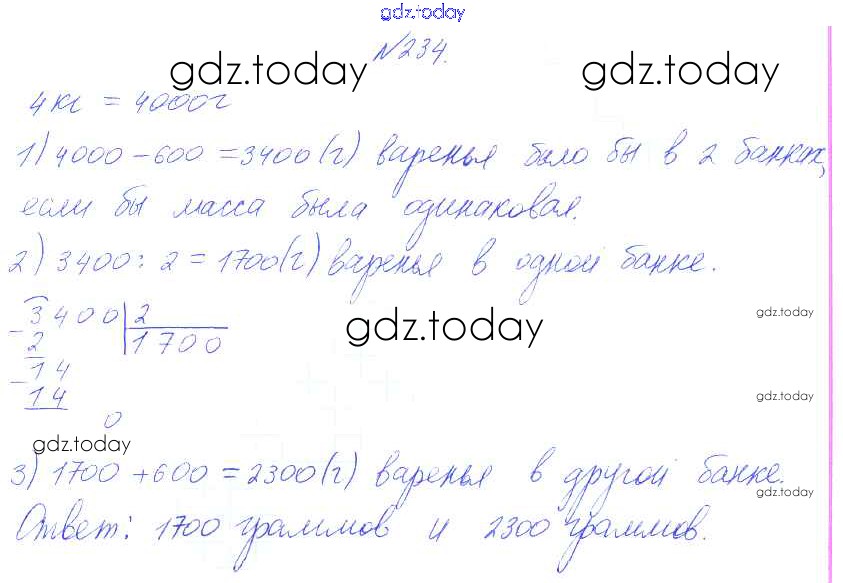 gdz.today
№234.
gdz.today gdz.today
4 кг = 4000 г
1) 4000 - 600 = 3400 (г) варенья было бы в 2 банках,
если бы масса была одинаковая.
2) 3400 : 2 = 1700 (г) варенья в одной банке.
- 3400 | 2
2 | 1700
gdz.today
gdz.today
- 14
14
gdz.today
0
gdz.today
3) 1700 + 600 = 2300 (г) варенья в другой банке.
gdz.today
Ответ: 1700 граммов и 2300 граммов.